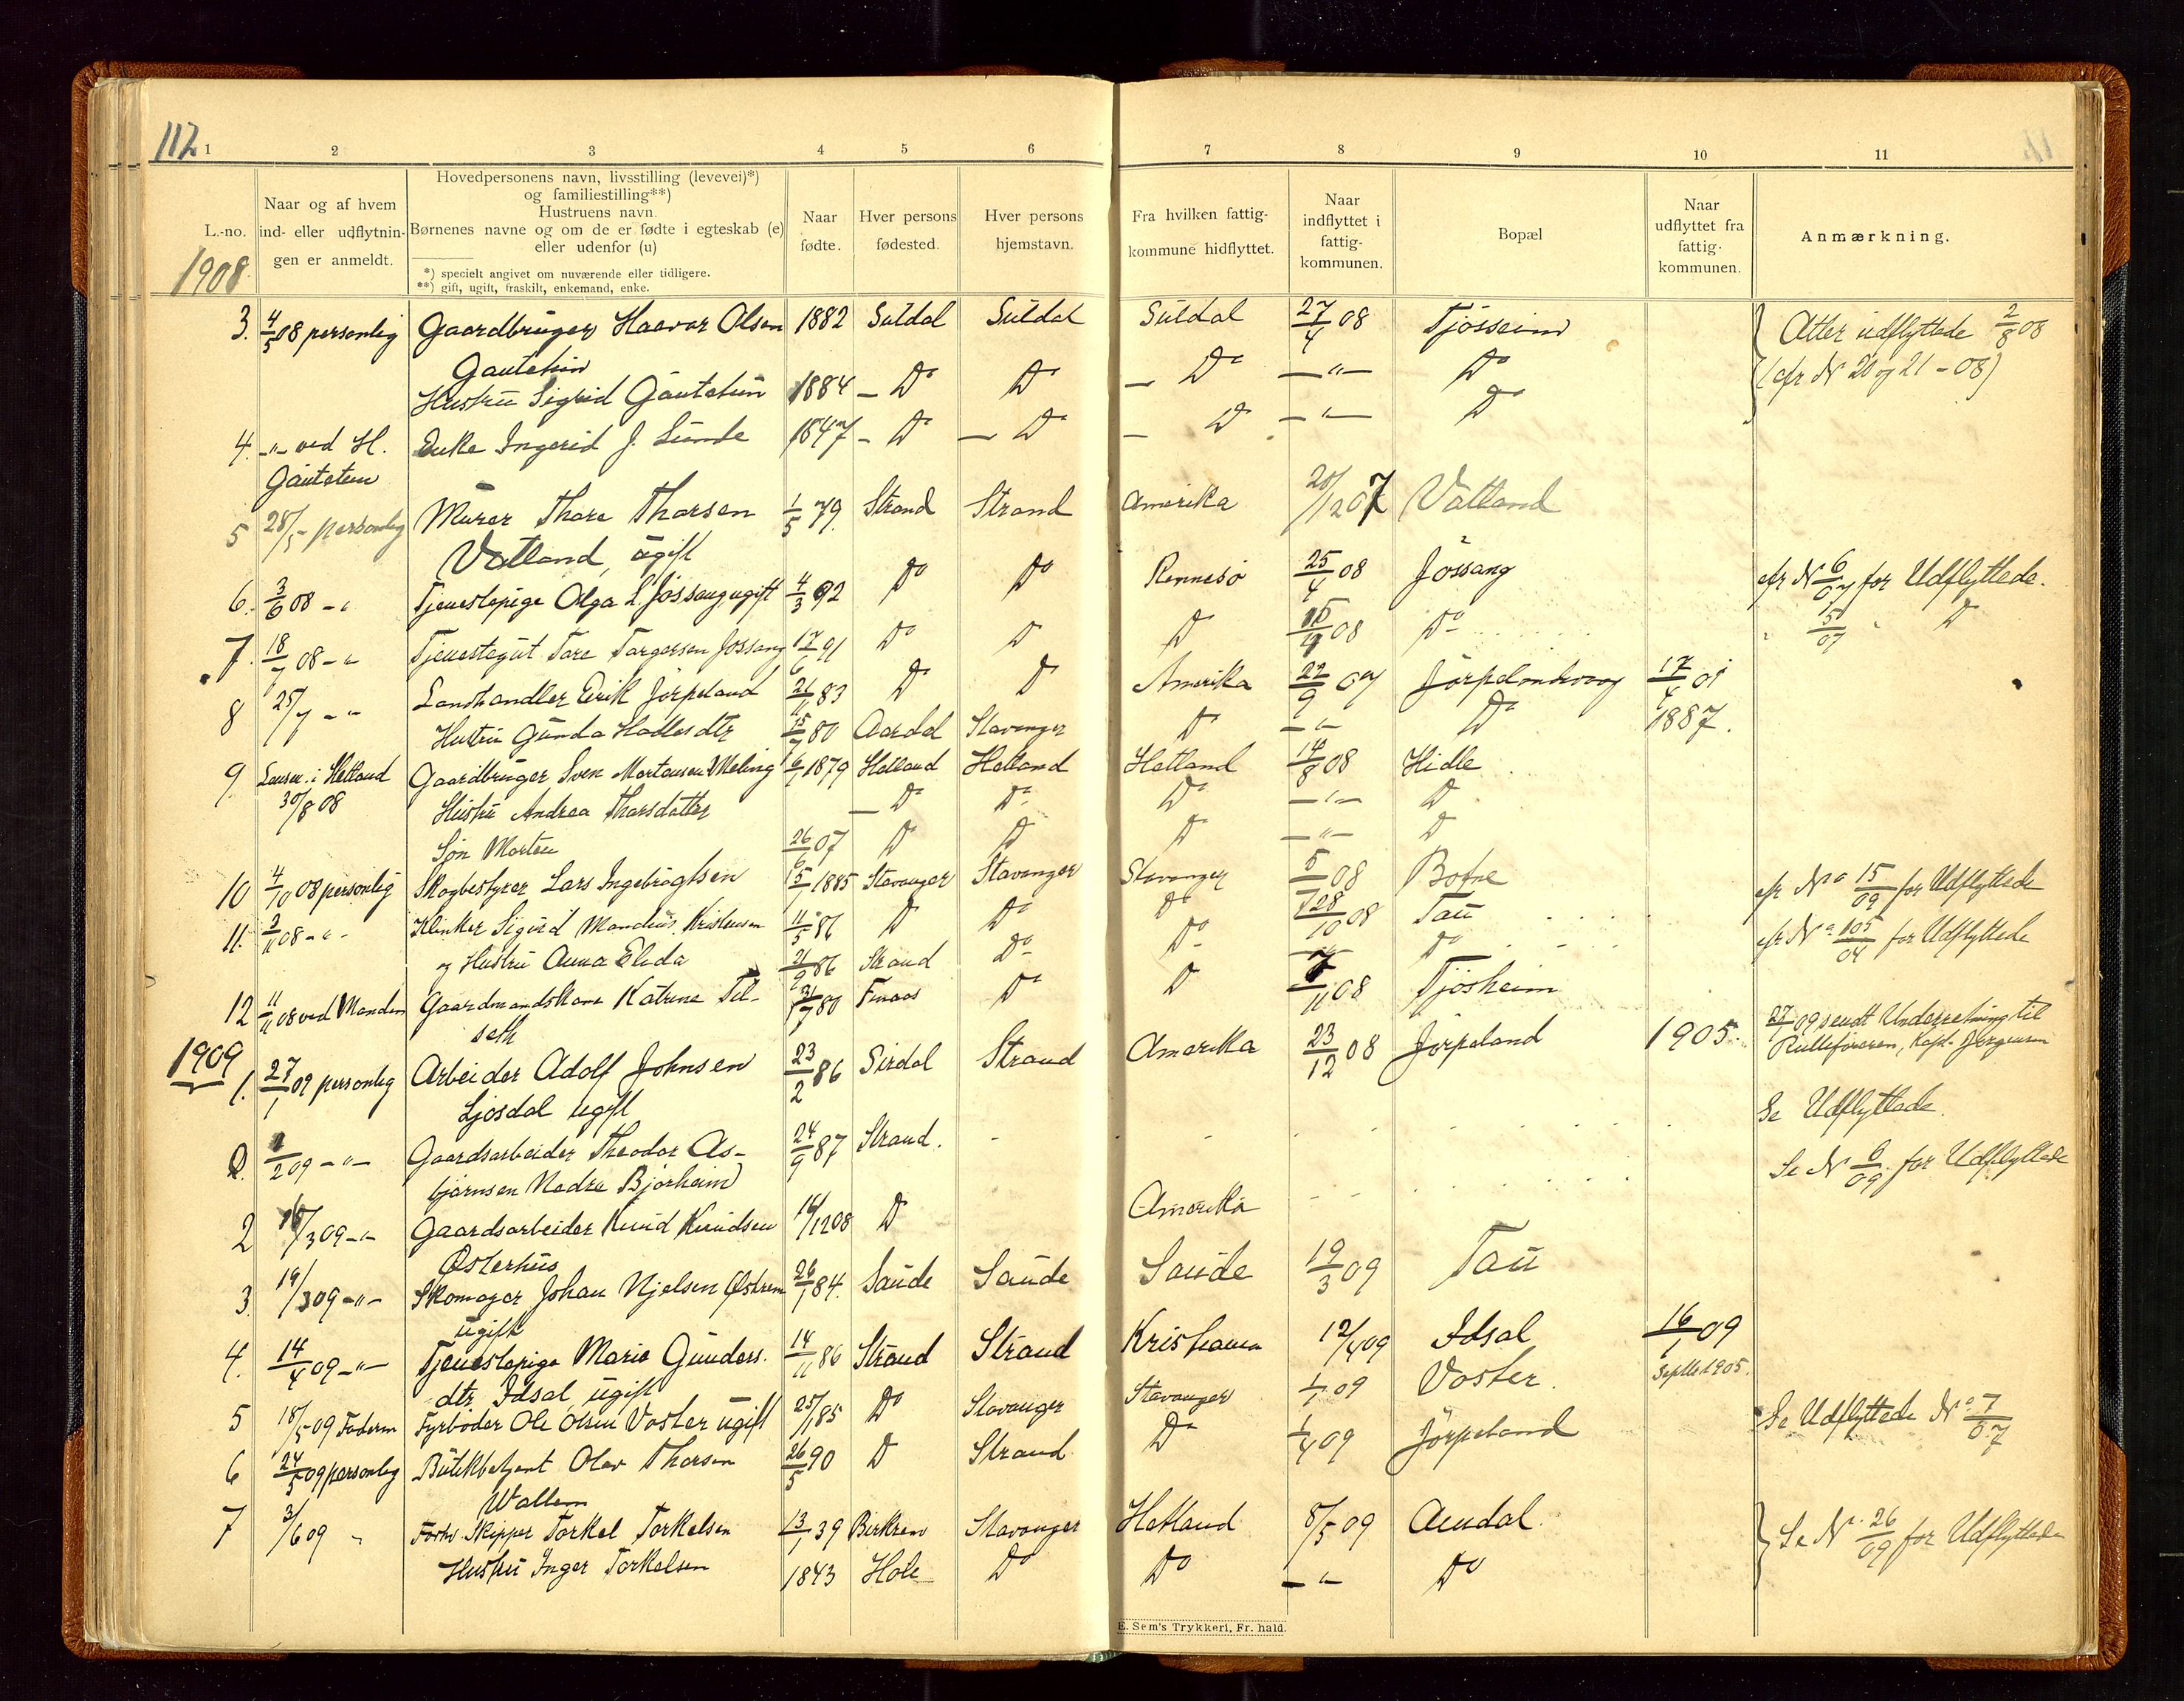 112
1 2 3 4 5 6 7 8 9 10 11
L.-no.
Naar og af hvem ind- eller udflytnin-gen er anmeldt.
Hovedpersonens navn, livsstilling (levevei)*)
og familiestilling**)
Hustruens navn.
Børnenes navne og om de er fødte i egteskab (e)
eller udenfor (u)
*) specielt angivet om nuværende eller tidligere.
**) gift, ugift, fraskilt, enkemand, enke.
Naar fødte.
Hver persons fødested.
Hver persons hjemstavn.
Fra hvilken fattig-kommune hidflyttet.
Naar indflyttet i fattig-kommunen.
Bopæl
Naar udflyttet fra fattig-kommunen.
Anmærkning.
1908
3. 4/5 08 personlig Gaardbruger Haavar Olsen 1882 Suldal Suldal Suldal 27/4 08 Tjösseim Atter udflyttede 2/8 08
Gautetun (cfr N 20 og 21 - 08)
Hustru Sigrid Gautetun 1884 - Do Do - Do - " - Do
4. -"- ved H. Enke Ingerid J. Sunde 1847 - Do - Do - Do - " - Do
Gautetun
5 28/5 - personlig Murer Thore Thorsen 1/5 79. Strand Strand Amerika 20/12 07 Vatland
Vatland, ugift
6. 3/6 08 - " Tjenestepige Olga L. Jössang ugift 4/3 92 Do Do Rennesö 25/4 08 Jössang cfr N 6/07 for Udflyttede.
7. 18/7 08 - " Tjenestegut Tore Torgersen Jössang 17/6 91 Do Do Do 08 Do " 5/07 " Do
8 25/7 - " Landhandler Erik Jörpeland 21/11 83 Do Do Amerika 22/9 07 Jörpelandsvaag 17/4 01
Hustru Gunda Hadlesdtr 80 Aardal Stavanger Do - " - Do 1887.
9 Lensm. i Hetland Gaardbruger Sven Mortensen Meling 6/1 1879 Hetland Hetland Hetland 14/8 08 Hidle
30/8 08 Hustru Andrea Thorsdatter - Do Do Do - " - Do
Søn Morten 26/6 07 Do Do Do - " - Do
10 4/10 08 personlig Skogbestyrer Lars Ingebrigtsen 5/1 1885 Stavanger Stavanger Stavanger 08 Botne cfr No 15/09 for Udflyttede
11. 2/11 08 - " - Klinker Sigurd Mandius Kristensen 11/5 86 Do Do Do 28/10 08 Tau cfr No 105/04 for Udflyttede
og Hustru Anna Elida 21/9 86 Strand Do Do - " - Do
12 11/11 08 ved Manden Gaardmandskone Katrine Til- 80 Finaas Do Do 7/11 08 Tjösheim
seth
1909
1. 27/1 09 personlig Arbeider Adolf Johnsen 23/2 86 Sirdal Strand Amerika 23/12 08 Jörpeland 1905. 27/1 09 sendt Underretning til
Rulleföreren, Kapt. Jörgensen
Ljosdal ugift Se Udflyttede.
2. 1/2 09 - " - Gaardsarbeider Theodor As- 24/9 87 Strand.
bjørnsen Nedre Bjørheim Se N 6/09 for Udflyttede
2 /3 09 - " - Gaardsarbeider Knud Knudsen 16/12 08 Do Amerika
Østerhus
3. 19/3 09 - " - Skomager Johan Njelsen Østrem 26/1 84. Saude Saude Saude 19/3 09 Tau
ugift
4. 14/4 09 - " - Tjenestepige Marie Gunders. 14/11 86 Strand Strand Kristiania 12/4 09 Idsal 16/1 09
dtr Idsal, ugift
5 18/5 09 Faderen Fyrböder Ole Olsen Voster ugift 25/1 85 Do Stavanger Stavanger 1/1 09 Voster. Septbr 1905.
6 24/5 09 personlig Butikbetjent Olav Thorsen 26/5 90 Do Strand Do 1/4 09 Jörpeland Se Udflyttede No 7/07
Wallem
7 3/6 09 " Forhv Skipper Torkel Torkelsen 13/1 39 Birkrem Stavanger Hetland 8/5 09 Aundal. Se No 26/09 for Udflyttede
Hustru Inger Torkelsen 1843 Hole Do Do - " - Do
E. Sem's Trykkeri, Fr. hald.